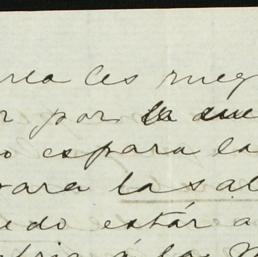 les rueg
r por la sue
o espara la
para la sal
edo estár a
á los